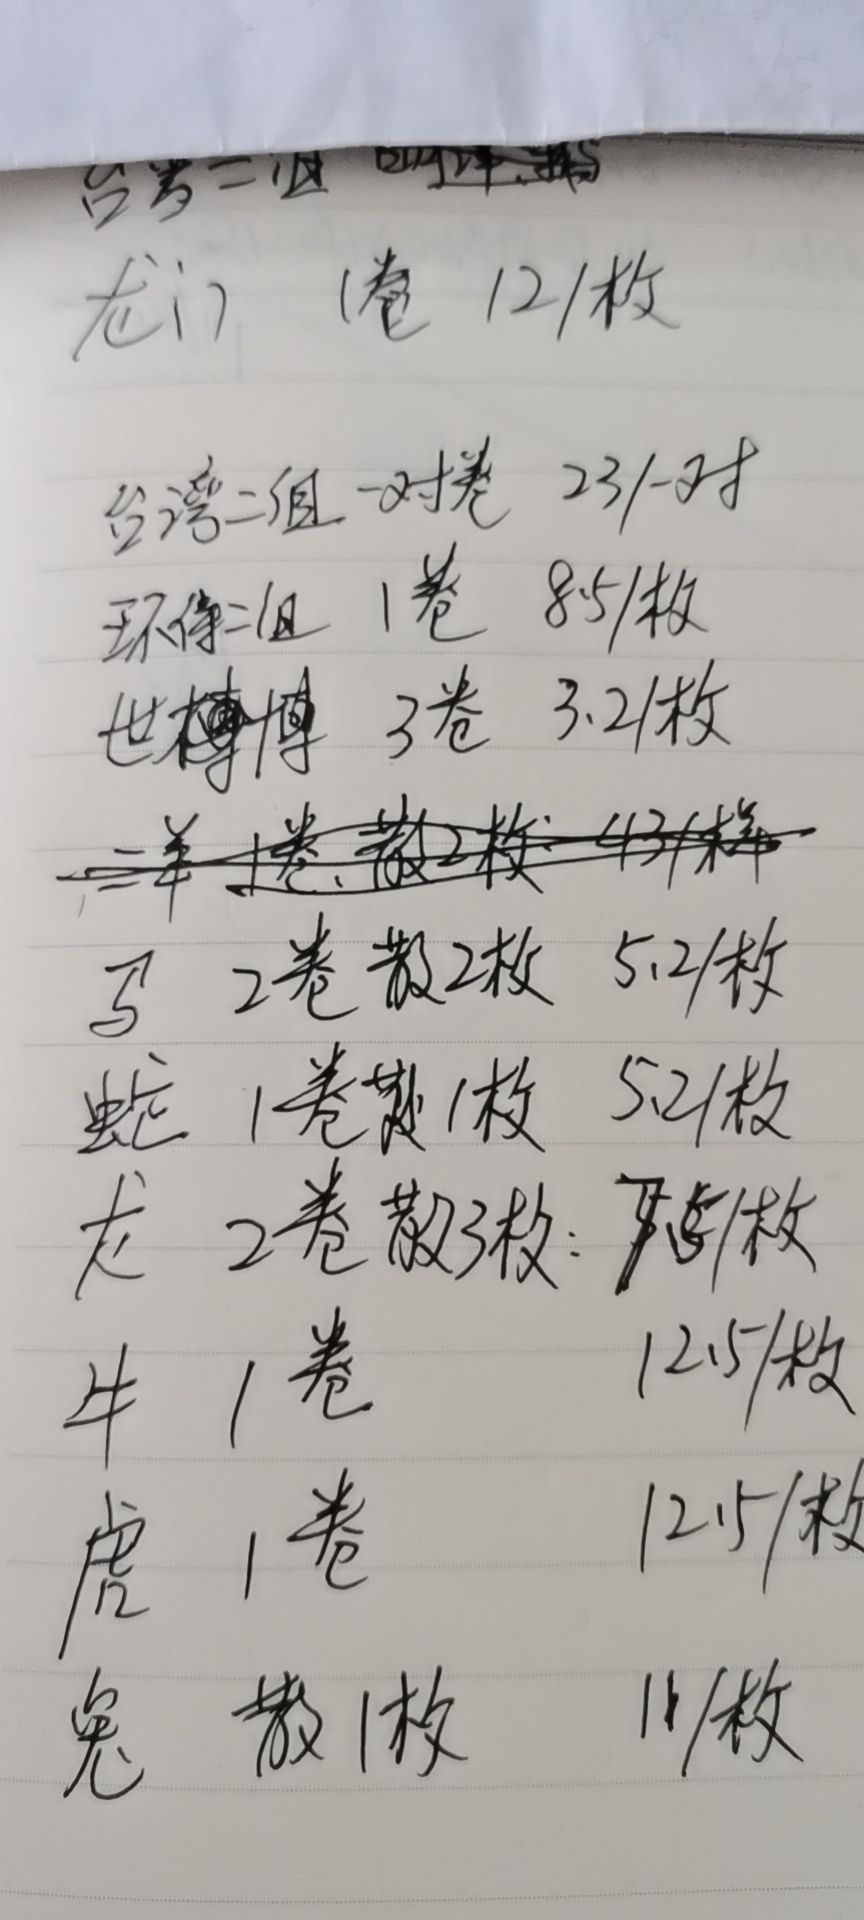 台湾二组
龙门 1卷 12/枚
台湾二组 一对卷 23/一对
环保二组 1卷 8.5/枚
世博 3卷 3.2/枚
三羊 1卷 散2枚 43/样
马 2卷散2枚 5.2/枚
蛇 1卷散1枚 5.2/枚
龙 2卷散3枚: /枚
牛 1卷 12.5/枚
虎 1卷 12.5/枚
兔 散1枚 11/枚